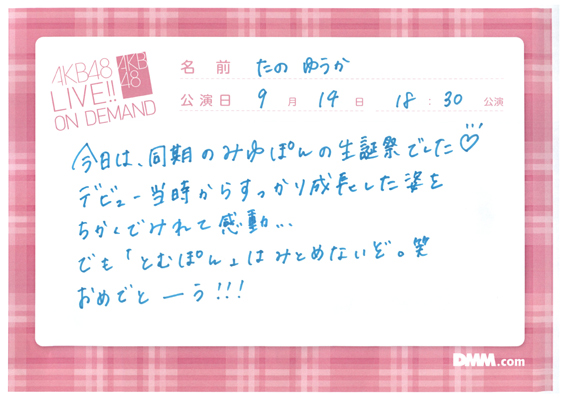 AKB48
LIVE!!
ON DEMAND
AKB
48
名 前 たの ゆうか
公演日 9 月 14 日 18 : 30 公演
今日は、同期のみゆぽんの生誕祭でした♡
デビュー当時からすっかり成長した姿を
ちかくでみれて感動...
でも「とむぽん」はみとめないぞ。笑
おめでとーう!!!
DMM.com